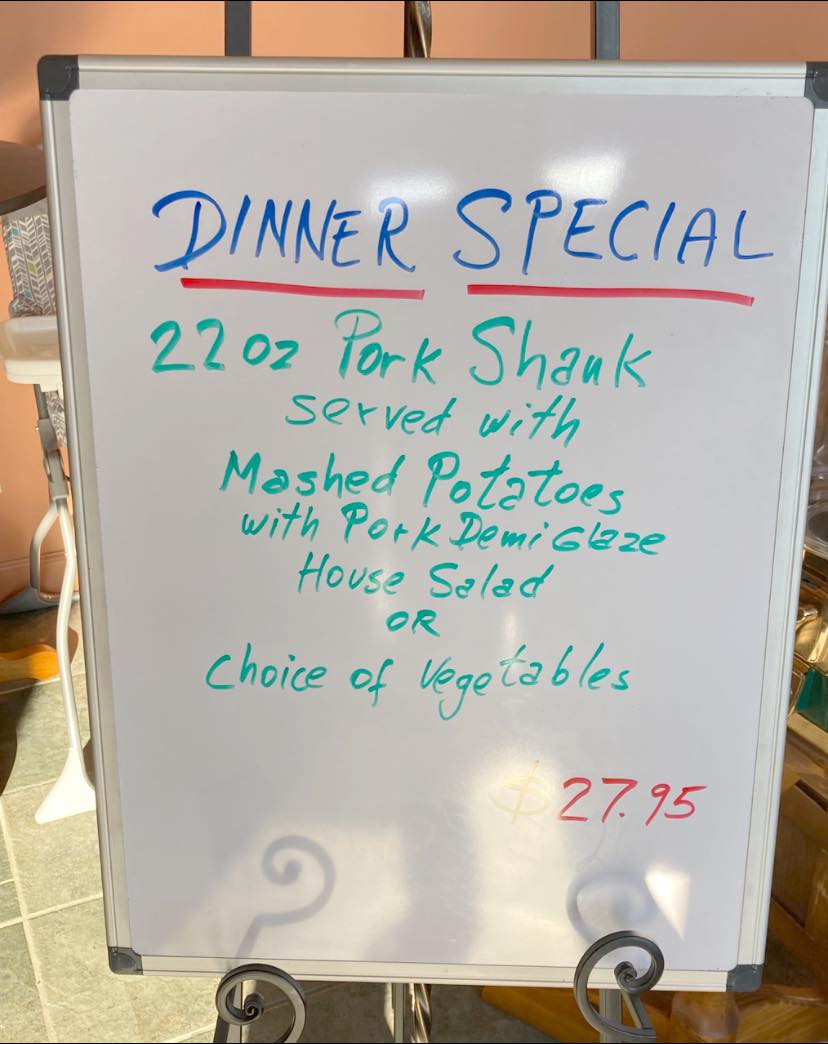 DINNER SPECIAL
22oz Pork Shank
served with
Mashed Potatoes
with Pork Demi Glaze
House Salad
OR
Choice of Vegetables
$27.95